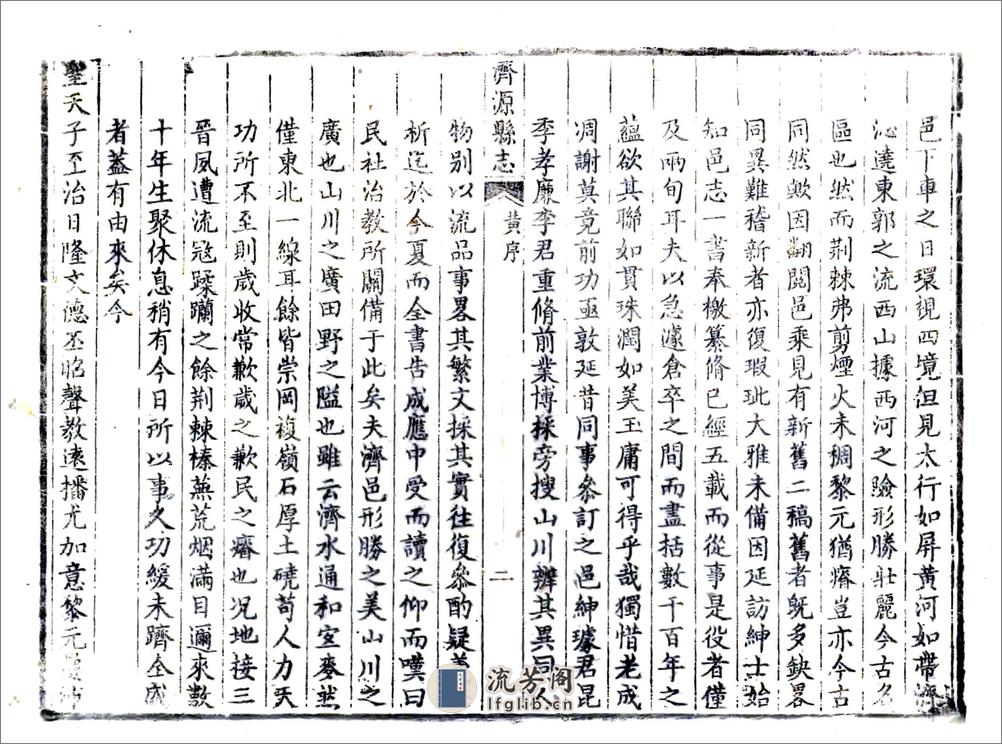 邑下車之日環視四境但見太行如屏黃河如帶濟
沁遶東郭之流西山據西河之險形勝壯麗今古名
區也然而荆棘弗剪煙火未稠黎元猶瘠豈亦今古
同然歟因翻閱邑乘見有新舊二稿舊者旣多缺畧
同異難稽新者亦復瑕玼大雅未備因延訪紳士始
知邑志一書奉檄纂脩已經五載而從事是役者僅
及兩旬耳夫以急遽倉卒之間而盡括數千百年之
蘊欲其聯如貫珠潤如美玉庸可得乎哉獨惜老成
凋謝莫竟前功亟敦延昔同事叅訂之邑紳璩君昆
季孝廉李君重脩前業博採旁搜山川辦其異同人
濟源縣志
黃序
二
物別以流品事畧其繁文採其實往復叅酌疑義
析迄於今夏而全書告成應中受而讀之仰而嘆曰
民社治教所關備于此矣夫濟邑形勝之美山川之
廣也山川之廣田野之隘也雖云濟水通和宜麥然
僅東北一線耳餘皆崇岡複嶺石厚土磽苟人力天
功所不至則歲收常歉歲之歉民之瘠也况地接三
晉夙遭流寇蹂躪之餘荆棘榛蕪荒烟滿目邇來數
十年生聚休息稍有今日所以事久功緩未躋全盛
者蓋有由來矣今
聖天子至治日隆文德丕昭聲教遠播尤加意黎元
流芳阁
lfglib.cn